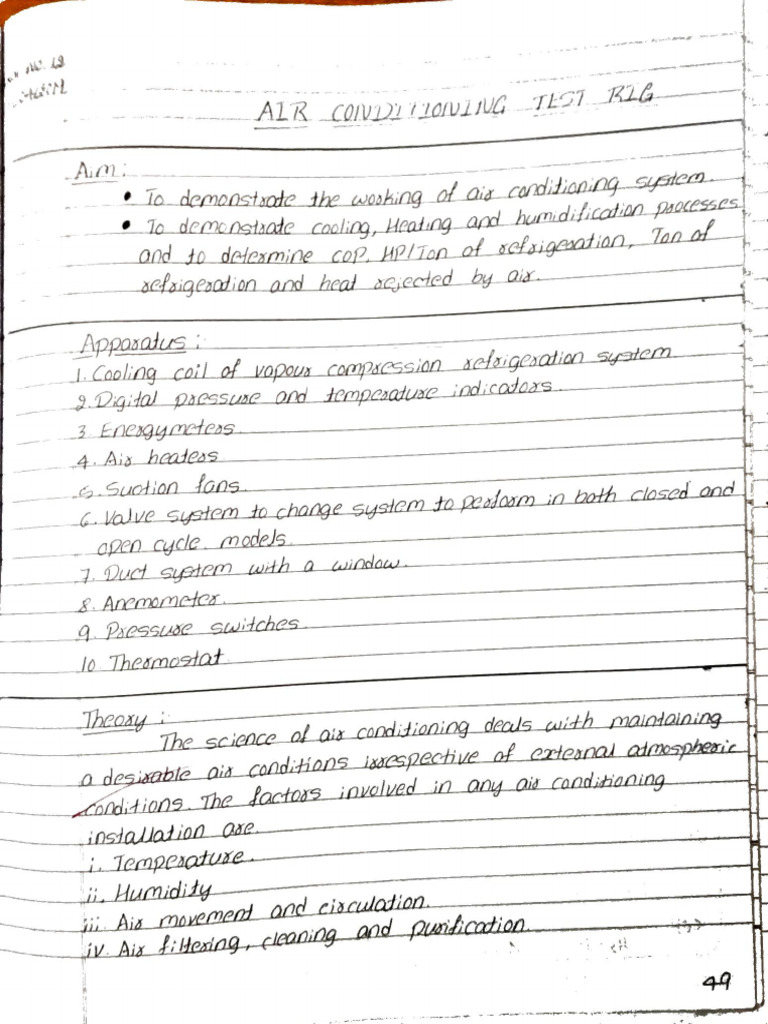 NO. 12
AIR CONDITIONING TEST RIG
Aim:
• To demonstrate the working of air conditioning system.
• To demonstrate cooling, Heating and humidification processes
and to determine COP, HP/Ton of refrigeration, Ton of
refrigeration and heat rejected by air.
Apparatus:
1. Cooling coil of vapour compression refrigeration system
2. Digital pressure and temperature indicators.
3 Energymeters.
4. Air heaters
5. Suction fans.
6. Valve system to change system to perform in both closed and
open cycle models.
7. Duct system with a window.
8. Anemometer.
9. Pressure switches.
10. Thermostat
Theory:
The science of air conditioning deals with maintaining
a desirable air conditions irrespective of external atmospheric
conditions. The factors involved in any air conditioning
installation are.
i. Temperature.
ii. Humidity
iii. Air movement and circulation.
iv. Air filtering, cleaning and purification.
49